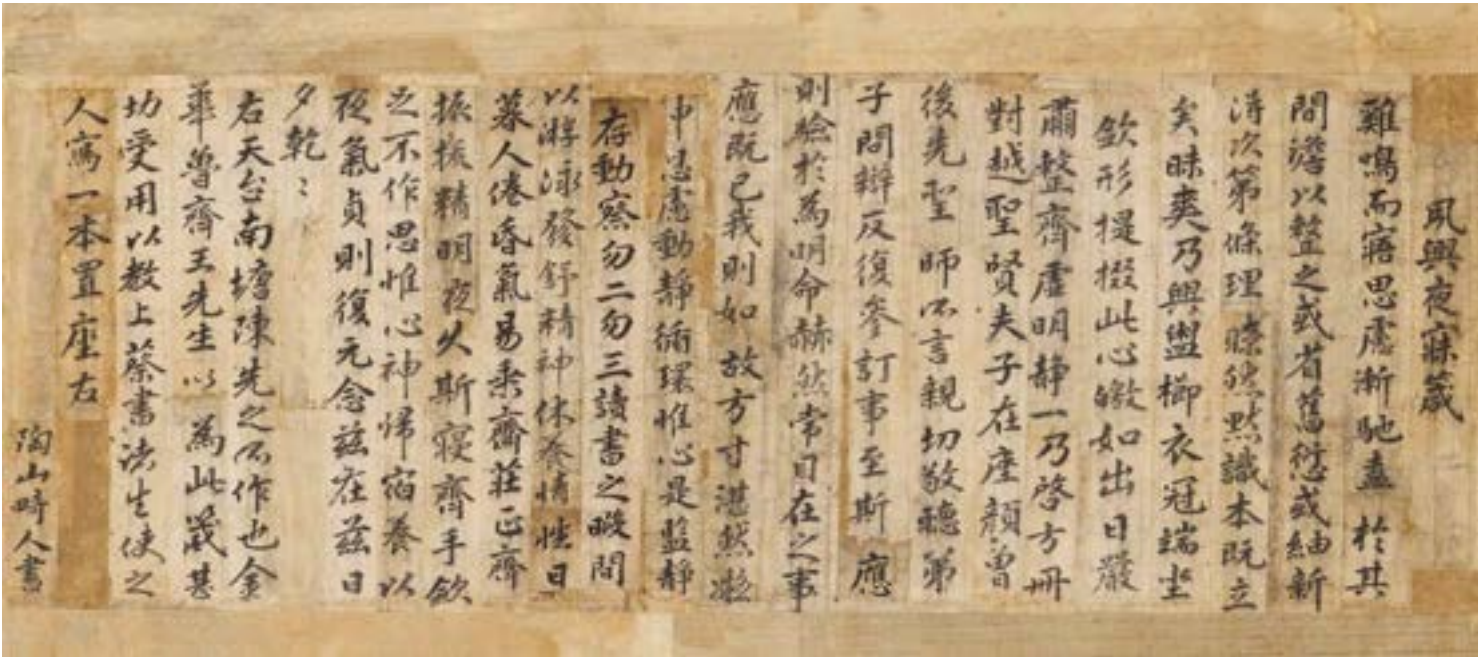 夙興夜寐箴
雞鳴而寤思慮漸馳盍於其
間澹以整之或省舊愆或紬新
得次第條理瞭然默識本既立
矣昧爽乃興盥櫛衣冠端坐
斂形提掇此心皦如出日嚴
肅整齊虛明靜一乃啓方冊
對越聖賢夫子在座顏曾
後先聖師所言親切敬聽弟
子問辯反復參訂事至斯應
則驗於爲明命赫然常目在之事
應既已我則如故方寸湛然凝
神息慮動靜循環惟心是監靜
存動察勿二勿三讀書之暇間
以游泳發舒精神休養情性日
暮人倦昏氣易乘齋莊正齊
振拔精明夜久斯寢齊手斂
足不作思惟心神歸宿養以
夜氣貞則復元念茲在茲日
夕乾〻
右天台南塘陳先之所作也金
華魯齋王先生以爲此箴甚
切受用以教上蔡書法生使之
人寫一本置座右
陶山畤人書